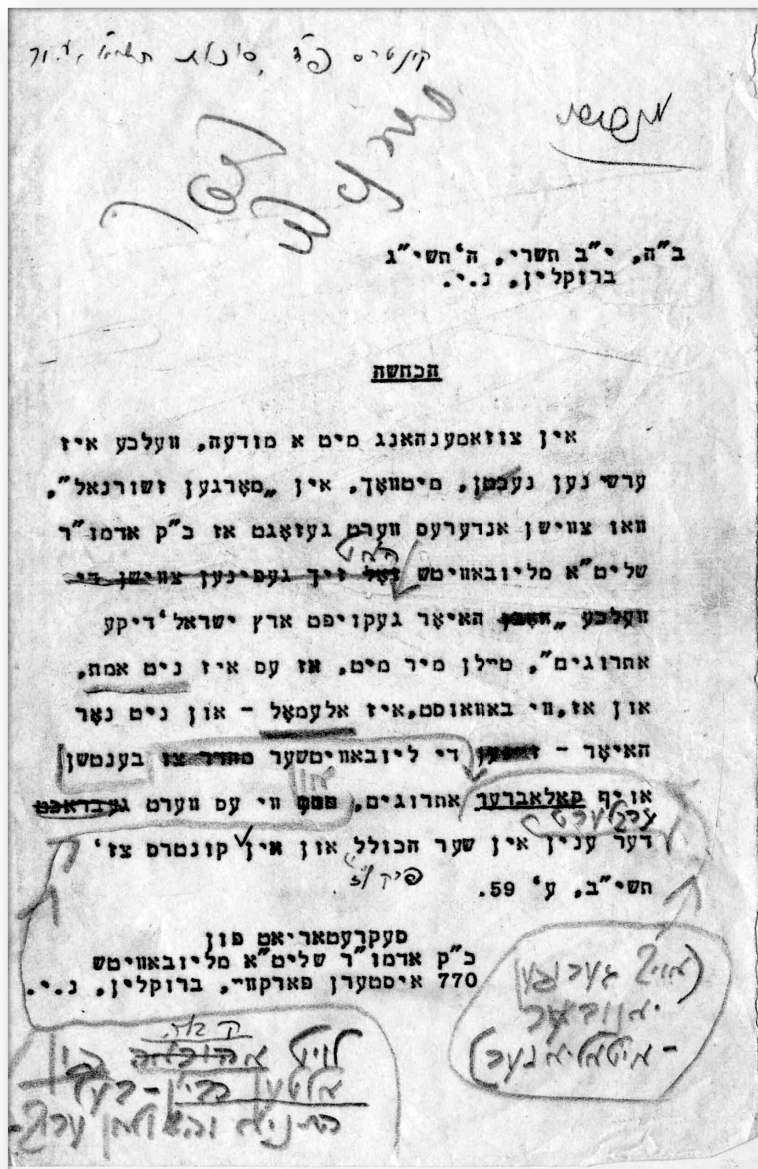 קונטרס פ"ד, סוכות
ב"ה, י"ב תשרי, ה'תשי"ג
ברוקלין, נ.י.
הכחשה
אין צוזאמענהאנג מיט א מודעה, וועלכע איז
ערשינען נעכטן, מיטוואך, אין „מאָרגען זשורנאל",
וואו צווישן אנדערעס ווערט געזאָגט אז כ"ק אדמו"ר
האט
שליט"א מליובאוויטש זאָל זיך געפינען צווישן די
וועלכע „האָבן האיאָר געקויפט ארץ ישראל'דיקע
אתרוגים", טיילן מיר מיט, אז עס איז ניט אמת,
און אז,ווי באוואוסט,איז אלעמאָל - און ניט נאָר
האיאָר - די ליובאוויטשער בענטשן
און
אויף קאלאברער אתרוגים, ווי עס ווערט געבראכט
ערקלערט
דער ענין אין שער הכולל און אין קונטרס צז'
תשי"ב, ע' 59.
סעקרעטאריאט פון
כ"ק אדמו"ר שליט"א מליובאוויטש
770 איסטערן פארקוויי, ברוקלין, נ.י.
(אויך גערופען
יאנובער
- איטאליאנער)
קבלה
לויט א הוראה פון
אלטען רבי'ן - בעל
התניא והשולחן ערוך -